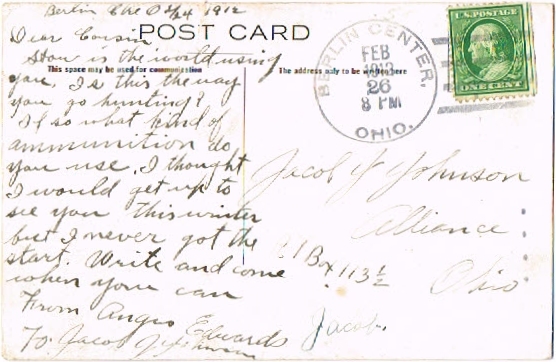 Berlin Cne O 2/24 1912
POST CARD
Dear Cousin
How is the world using
This space may be used for communication
The address only to be written here
you. Is this the way
you go hunting?
If so what kind of
ammunition do
you use. I thought
I would get up to
see you this winter
but I never got the
start. Write and come
when you can
From Angus Edwards
To Jacob J Johnson
BERLIN CENTER,
FEB
26
8 PM
OHIO.
U.S. POSTAGE
ONE CENT
Jacob J Johnson
Alliance
Box 113 1/2
Ohio
Jacob.